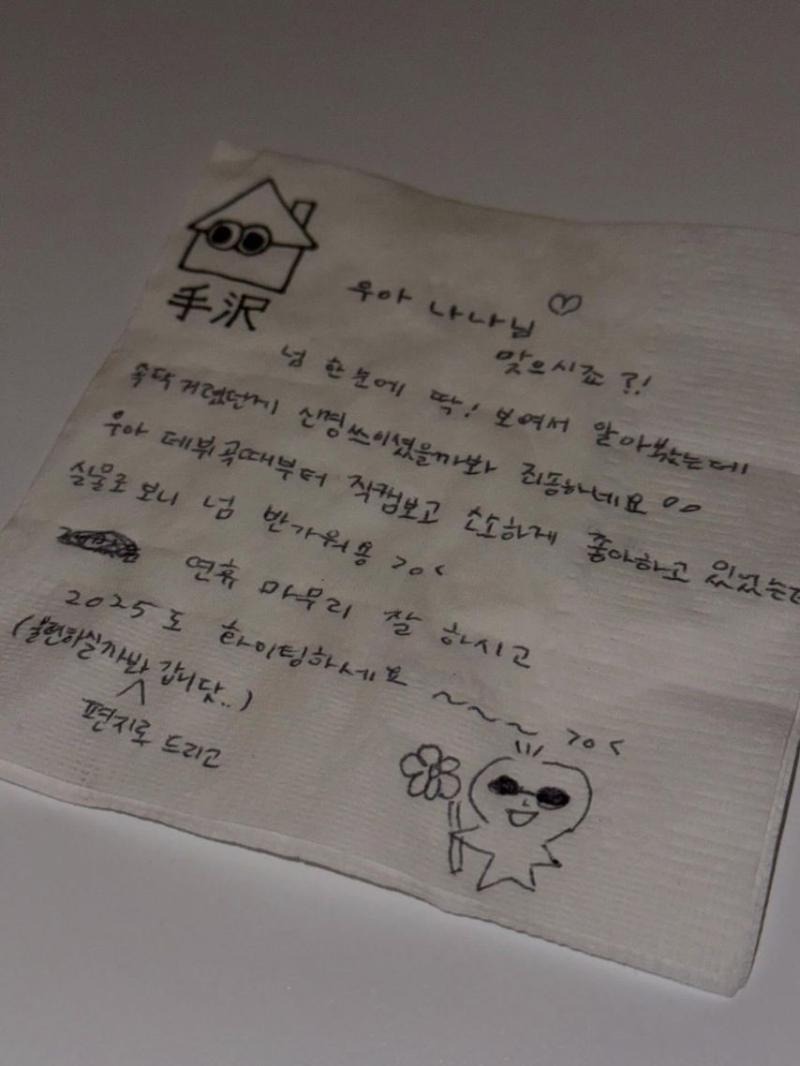 手沢
우아 나나님 ♡
맞으시죠?!
넘 한눈에 딱! 보여서 알아봤는데
속닥거렸던게 신경쓰이셨을까봐 죄송하네요 ㅇㅇ
우아 데뷔곡때부터 직캠보고 소소하게 좋아하고 있었는데
실물로 보니 넘 반가워용 >o<
연휴 마무리 잘 하시고
2025도 화이팅하세요 ~~~~ >o<
(불편하실까봐 갑니닷..)
편지로 드리고